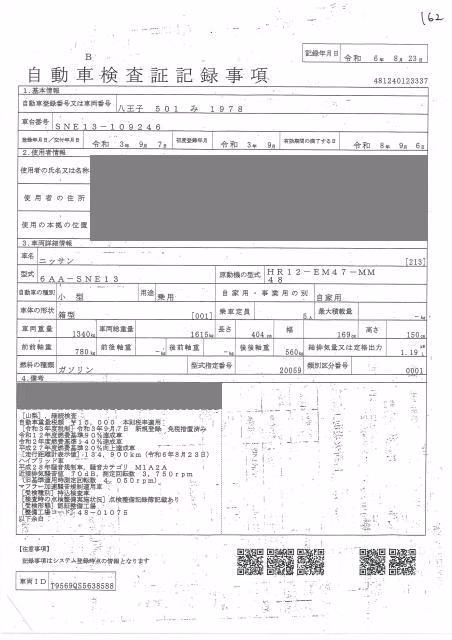 162
記録年月日 令和 6年 8月 23日
B
自動車検査証記録事項
481240123337
1.基本情報
自動車登録番号又は車両番号 八王子 501 み 1978
車台番号 SNE13-109246
登録年月日/交付年月日 令和 3年 9月 7日 初度登録年月 令和 3年 9月 有効期間の満了する日 令和 8年 9月 6日
2.使用者情報
使用者の氏名又は名称
使用者の住所
使用の本拠の位置
3.車両詳細情報
車名 ニッサン [213]
型式 6AA-SNE13 原動機の型式 HR12-EM47-MM48
自動車の種別 小型 用途 乗用 自家用・事業用の別 自家用
車体の形状 箱型 [001] 乗車定員 5人 最大積載量 -kg
車両重量 1340kg 車両総重量 1615kg 長さ 404cm 幅 169cm 高さ 150cm
前前軸重 780kg 前後軸重 -kg 後前軸重 -kg 後後軸重 560kg 総排気量又は定格出力 1.19L
燃料の種類 ガソリン 型式指定番号 20059 類別区分番号 0001
4.備考
[山梨] 継続検査
自動車重量税額 ¥15,000 本則税率適用
[令和3年度税制]令和3年9月7日 新規登録 免税措置済み
令和12年度燃費基準90%達成車
令和2年度燃費基準140%達成車
平成27年度燃費基準20%向上達成車
[走行距離計表示値]134,900km(令和6年8月23日)
ハイブリッド車
平成28年騒音規制車,騒音カテゴリ M1A2A
近接排気騒音値 70dB,測定回転数 3,750rpm
(旧基準適用時測定回転数 4,050rpm)
マフラー加速騒音規制適用車
[受検種別]持込検査車
[検査時の点検整備実施状況]点検整備記録簿記載あり
[受検形態]認証整備工場
[整備工場コード]48-01075
以下余白
【注意事項】
記録事項はシステム登録時点の情報となります
車両ID T9569QS5638588